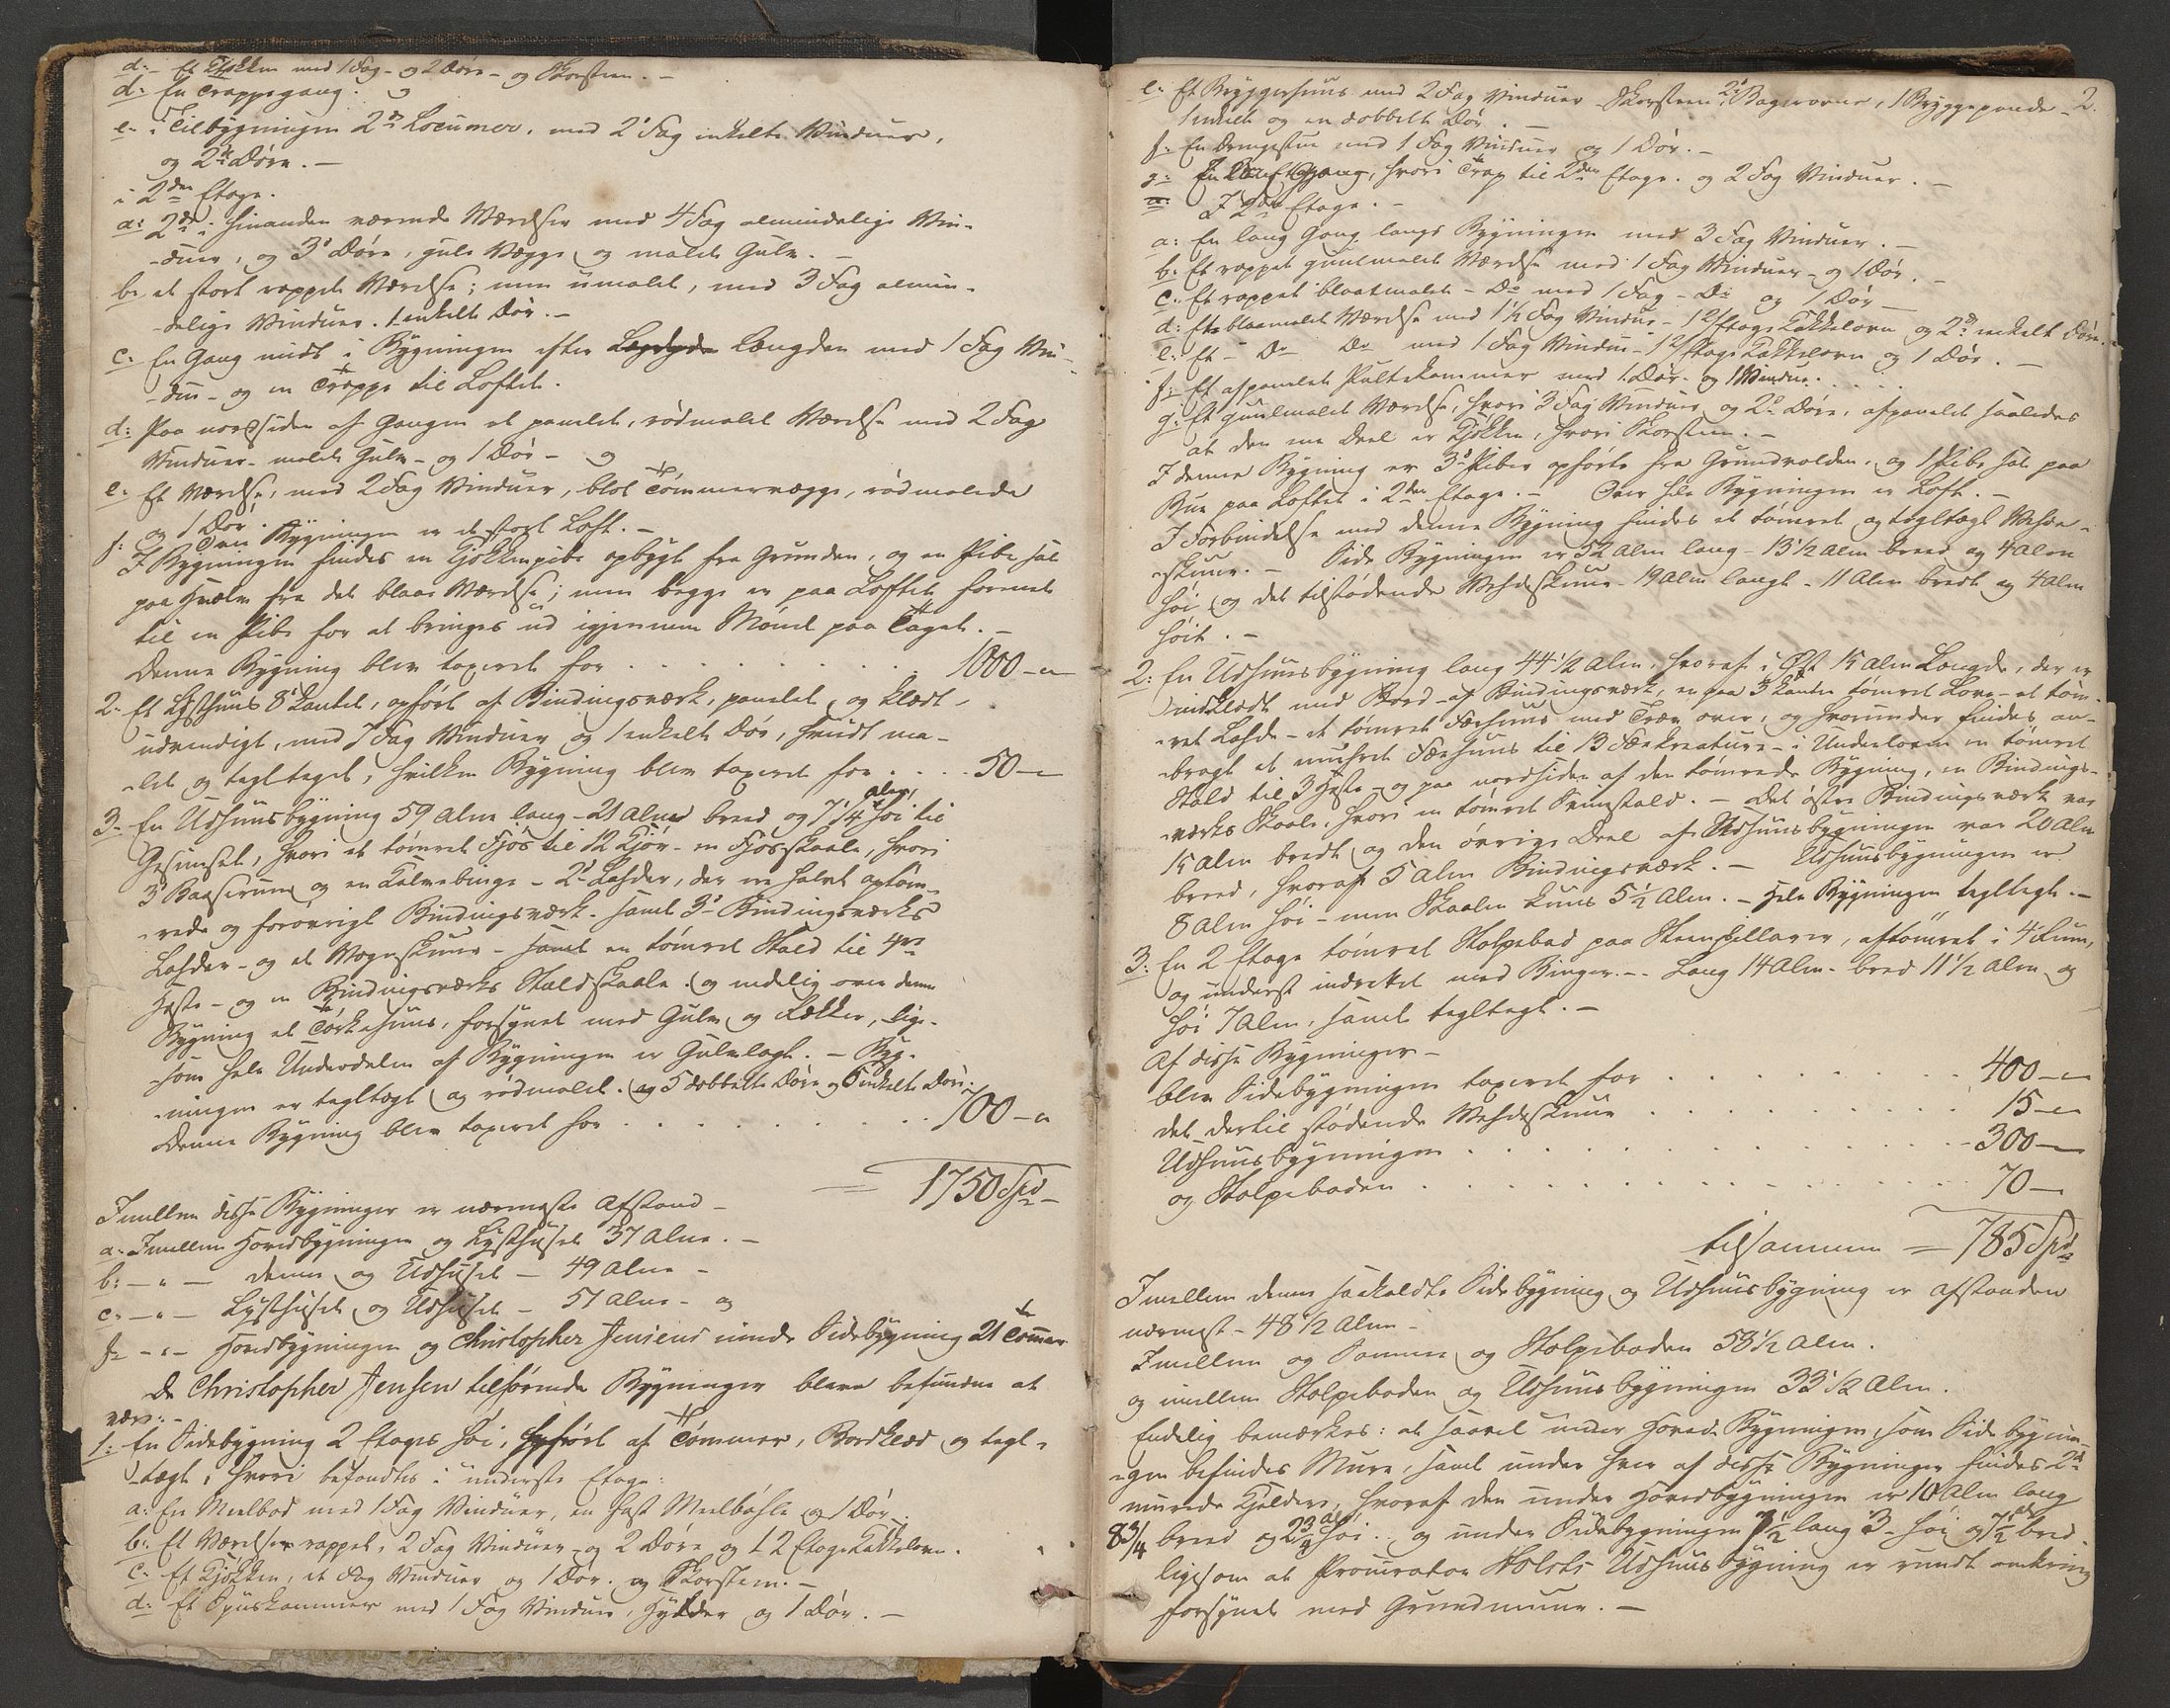 d: Et Kjøkken med 1 Fag - og 2 Døre - og Skorsteen. -
d: En Trappegang. og
e: i Tilbygningen 2de Locumer, med 2 Fag enkelte Vinduer,
og 2de Døre. -
i 2den Etage.
a: 2de i hinanden værende Værelser med 4 Fag almindelige Vin-
-duer, og 3 Døre, gule Vægge og malet Gulv. -
b: et stort rappet Værelse; men umalet, med 3 Fag almin-
-delige Vinduer. 1 enkelt Dør. -
c: En Gang midt i Bygningen efter Længden med 1 Fag Vin-
-due - og en Trappe til Loftet.
d: Paa nordsiden af Gangen et panelet, rødmalet Værelse med 2 Fag
Vinduer - malet Gulv - og 1 Dør - og
e: Et Værelse, med 2 Fag Vinduer, blot Tømmervægge, rødmalede
og 1 Dør.
f: Over Bygningen er et stort Loft. -
I Bygningen findes en Kjøkkenpibe opbygt fra Grunden, og en Pibe sat
paa Hvælv fra det blaae Værelse; men begge er paa Loftet formet
til en Pibe for at bringes ud igjennem Mønet paa Taget. -
Denne Bygning blev taxeret for . . . 1000 - "
2. Et Lysthuus 8kantet, opført af Bindingsværk, panelet og klædt
udvendigt, med 7 Fag Vinduer og 1 enkelt Dør, hvidt ma-
-let og tegltegt, hvilken Bygning blev taxeret for . . . 50 - "
3. En Udhuusbygning 59 Alne lang - 21 Alne bred og 7 1/4 Alen høi til
Gesimset, hvori et tømret Fjøs til 12 Kjør - en Fjøsskaale, hvori
3 Baaserum og en Kalvebinge - 2 Lahder, der ere halvt optøm-
-rede og forøvrigt Bindingsværk. samt 3 Bindingsværks
Lahder - og et Vognskuur - samt en tømret Stald til 4re
Heste - og en Bindingsværks Staldskaale. og endelig over denne
Bygning et Tørkehuus, forsynet med Gulv og Rækker, lige-
-som hele Underdelen af Bygningen er Gulvlagt. - Byg-
-ningen er tegltægt og rødmalet. og 5 dobbelte Døre og 6 enkelte Døre.
Denne Bygning blev taxeret for . . . 700 - "
= 1750 Spd -
Imellem disse Bygninger er nærmeste Afstand -
a. Imellem Hovedbygningen og Lysthuset 37 Alne. -
b: - " - denne og Udhuset - 49 Alne -
c. - " - Lysthuset og Udhuset - 51 Alne - og
f: - " - Hovedbygningen og Christopher Jensens Sidebygning 21 Tommer
De Christopher Jensen tilhørende Bygninger bleve befundne at
være: -
1: En Sidebygning 2 Etages høi, opført af Tømmer, Bordklæd og tegl-
-tægt, hvori befandtes i underste Etage:
a: En Meelbod med 1 Fag Vinduer, en fast Meelbøhle og 1 Dør -
b: Et Værelse rappet, 2 Fag Vinduer og 2 Døre og 1 2 Etages Kakkelovn.
c: Et Kjøkken, et Fag Vinduer og 1 Dør. og Skorsteen. -
d: Et Spiskammer med 1 Fag Vinduer, Hylder og 1 Dør. -
2.
e: Et Bryggerhuus med 2 Fag Vinduer Skorsteen, 2 Bagerovne, 1 Bryggepande -
1 enkelt og en dobbelt Dør. -
f: En Drengestue med 1 Fag Vinduer og 1 Dør. -
g: En Gang, hvori Trap til 2den Etage. og 2 Fag Vinduer. -
I 2den Etage. -
a: En lang Gang langs Bygningen med 3 Fag Vinduer. -
b: Et rappet guulmalet Værelse med 1 Fag Vinduer - og 1 Dør. -
c: Et rappet blaatmalet - Do med 1 Fag - Do og 1 Dør -
d: Et blaamalet Værelse med 1 1/2 Fag Vindue - 1 2 Etages Kakkelovn og 2de enkelt Døre.
e: Et - Do Do med 1 Fag Vindue - 1 2 Etages Kakkelovn og 1 Dør. -
f: Et afpanelet Pultekammer med 1 Dør - og 1 Vindue. . . .
g: Et guulmalet Værelse, hvori 3 Fag Vinduer og 2de Døre, afpanelet saaledes
at den ene Deel er Kjøkken, hvori Skorsteen. -
I denne Bygning er 3 Piber opførte fra Grundvolden, og 1 Pibe sat paa
Bue paa Loftet i 2den Etage. - Over hele Bygningen er Loft. -
I Forbindelse med denne Bygning findes et tømret og tegltægt Vehde-
-skuur. - Side Bygningen er 52 Alen lang - 13 1/2 Alen breed og 4 Alen
høi og det tilstødende Vehdeskuur 19 Alen langt - 11 Alen bredt og 4 Alen
høit. -
2: En Udhuusbygning lang 44 1/2 Alen, hvoraf i Øst 15 Alen Længde, der er
indklædt med Bord - af Bindingsværk, er paa 3 Kanter tømret Love - et tøm-
-ret Lahde - et tømret Fæehuus med Trev over, og hvorunder findes an-
-bragt et muhret Fæehuus til 13 Fækreature - i Underloven en tømret
Stald til 3 Heste - og paa nordsiden af den tømrede Bygning, en Bindings-
-værks Skaale, hvori en tømret Svinestald. - Det østre Bindingsværk var
15 Alen bredt og den øvrige Deel af Udhuusbygningen var 20 Alen
breed, hvoraf 5 Alen Bindingsværk. - Udhuusbygningen er
8 Alen høi - men Skaalen kuns 5 1/2 Alen. - Hele Bygningen tegltægt. -
3: En 2 Etage tømret Stolpebod paa Steenpillarer, aftømret i 4 Rum,
og underst indrettet med Binger. - Lang 14 Alen - bred 11 1/2 Alen og
høi 7 Alen, samt tegltægt. -
Af disse Bygninger -
blev Sidebygningen taxeret for . . . 400 - "
det dertil stødende Vehdeskuur . . . 15 - "
Udhuusbygningen . . . 300 -
og Stolpeboden . . . 70 -
tilsammen = 785 Spd
Imellem denne saakaldte Sidebygning og Udhuusbygning er Afstanden
nærmest - 48 1/2 Alen -
Imellem og Samme og Stolpeboden 58 1/2 Alen.
og imellem Stolpeboden og Udhuusbygningen 33 1/2 Alen.
Endelig bemærkes: at saavel under Hoved Bygningen, som Side bygnin-
-gen befindes Mure, samt under hver af disse Bygninger findes 2de
murede Kjeldere, hvoraf den under Hovedbygningen er 10 Alen lang
8 3/4 bred og 2 3/4 al høi. og under Sidebygningen 7 1/2 lang 3 - høi og 7 1/2 al bred.
ligesom at Procurator Holsts Udhuusbygning er rundt omkring
forsynet med Grundmuur. -